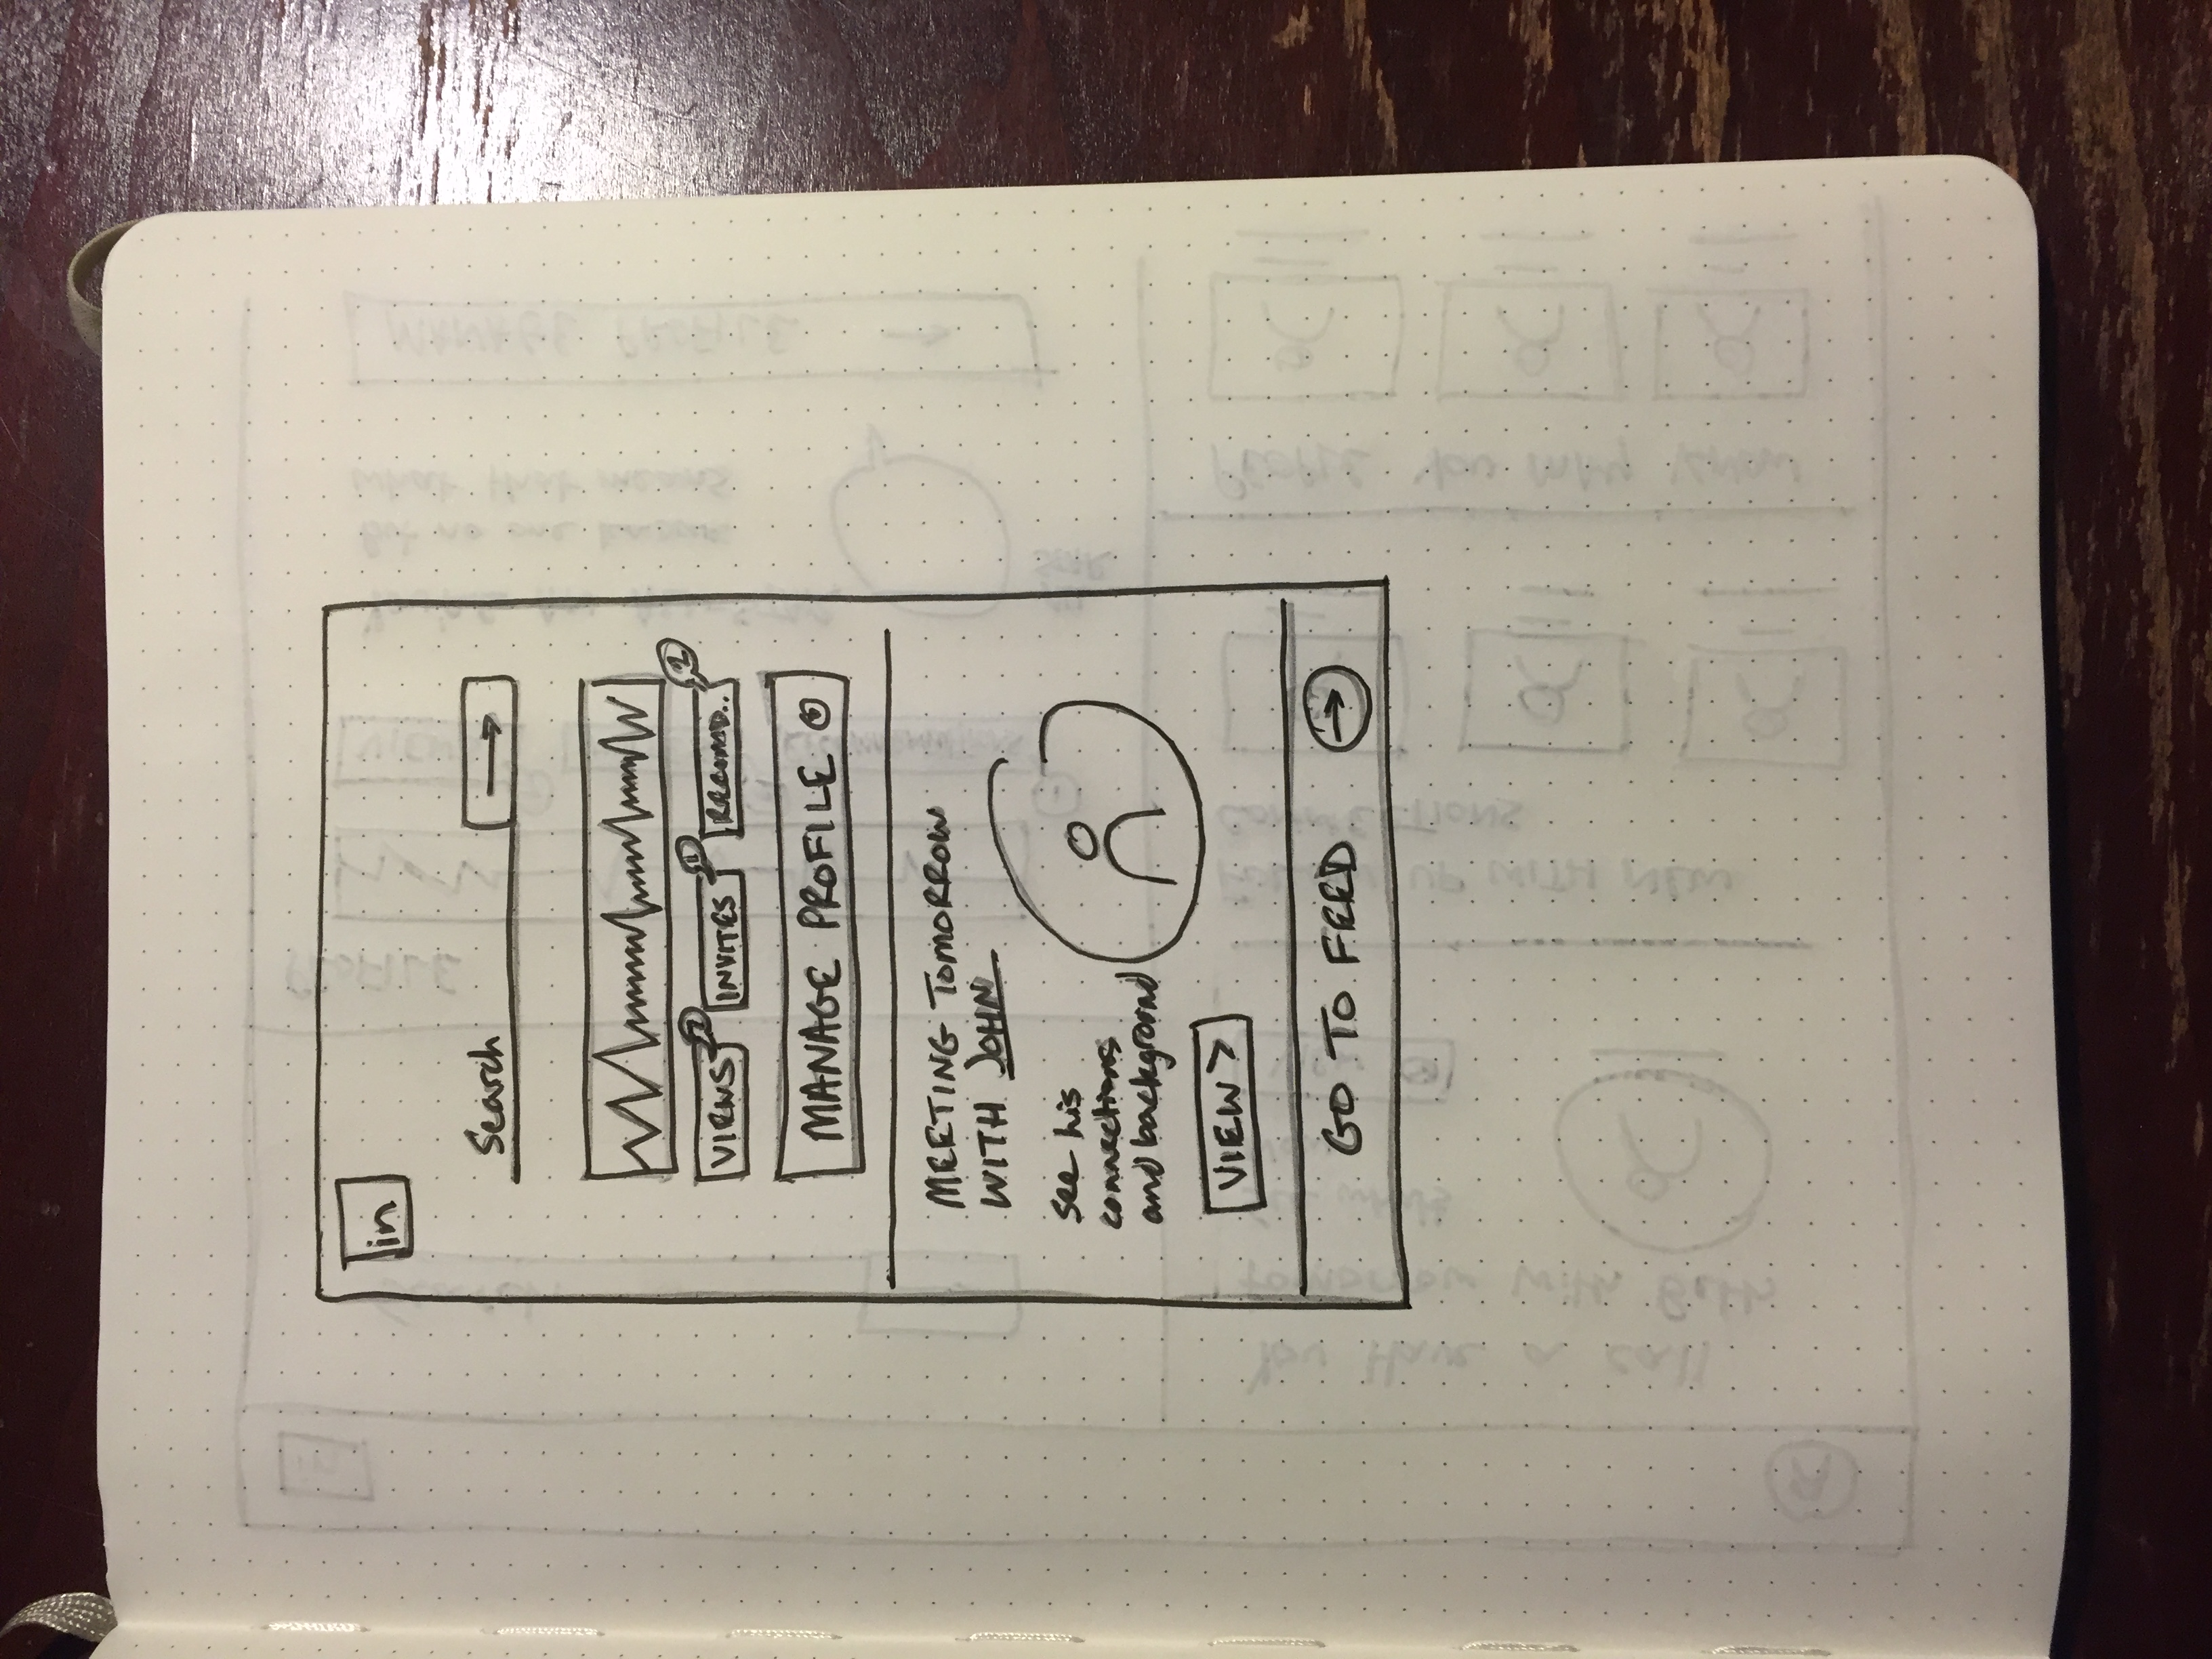 in
Search
VIEWS
INVITES 1
RECOMD.. 2
MANAGE PROFILE
MEETING TOMORROW
WITH JOHN
see his
connections
and background
VIEW >
GO TO FEED